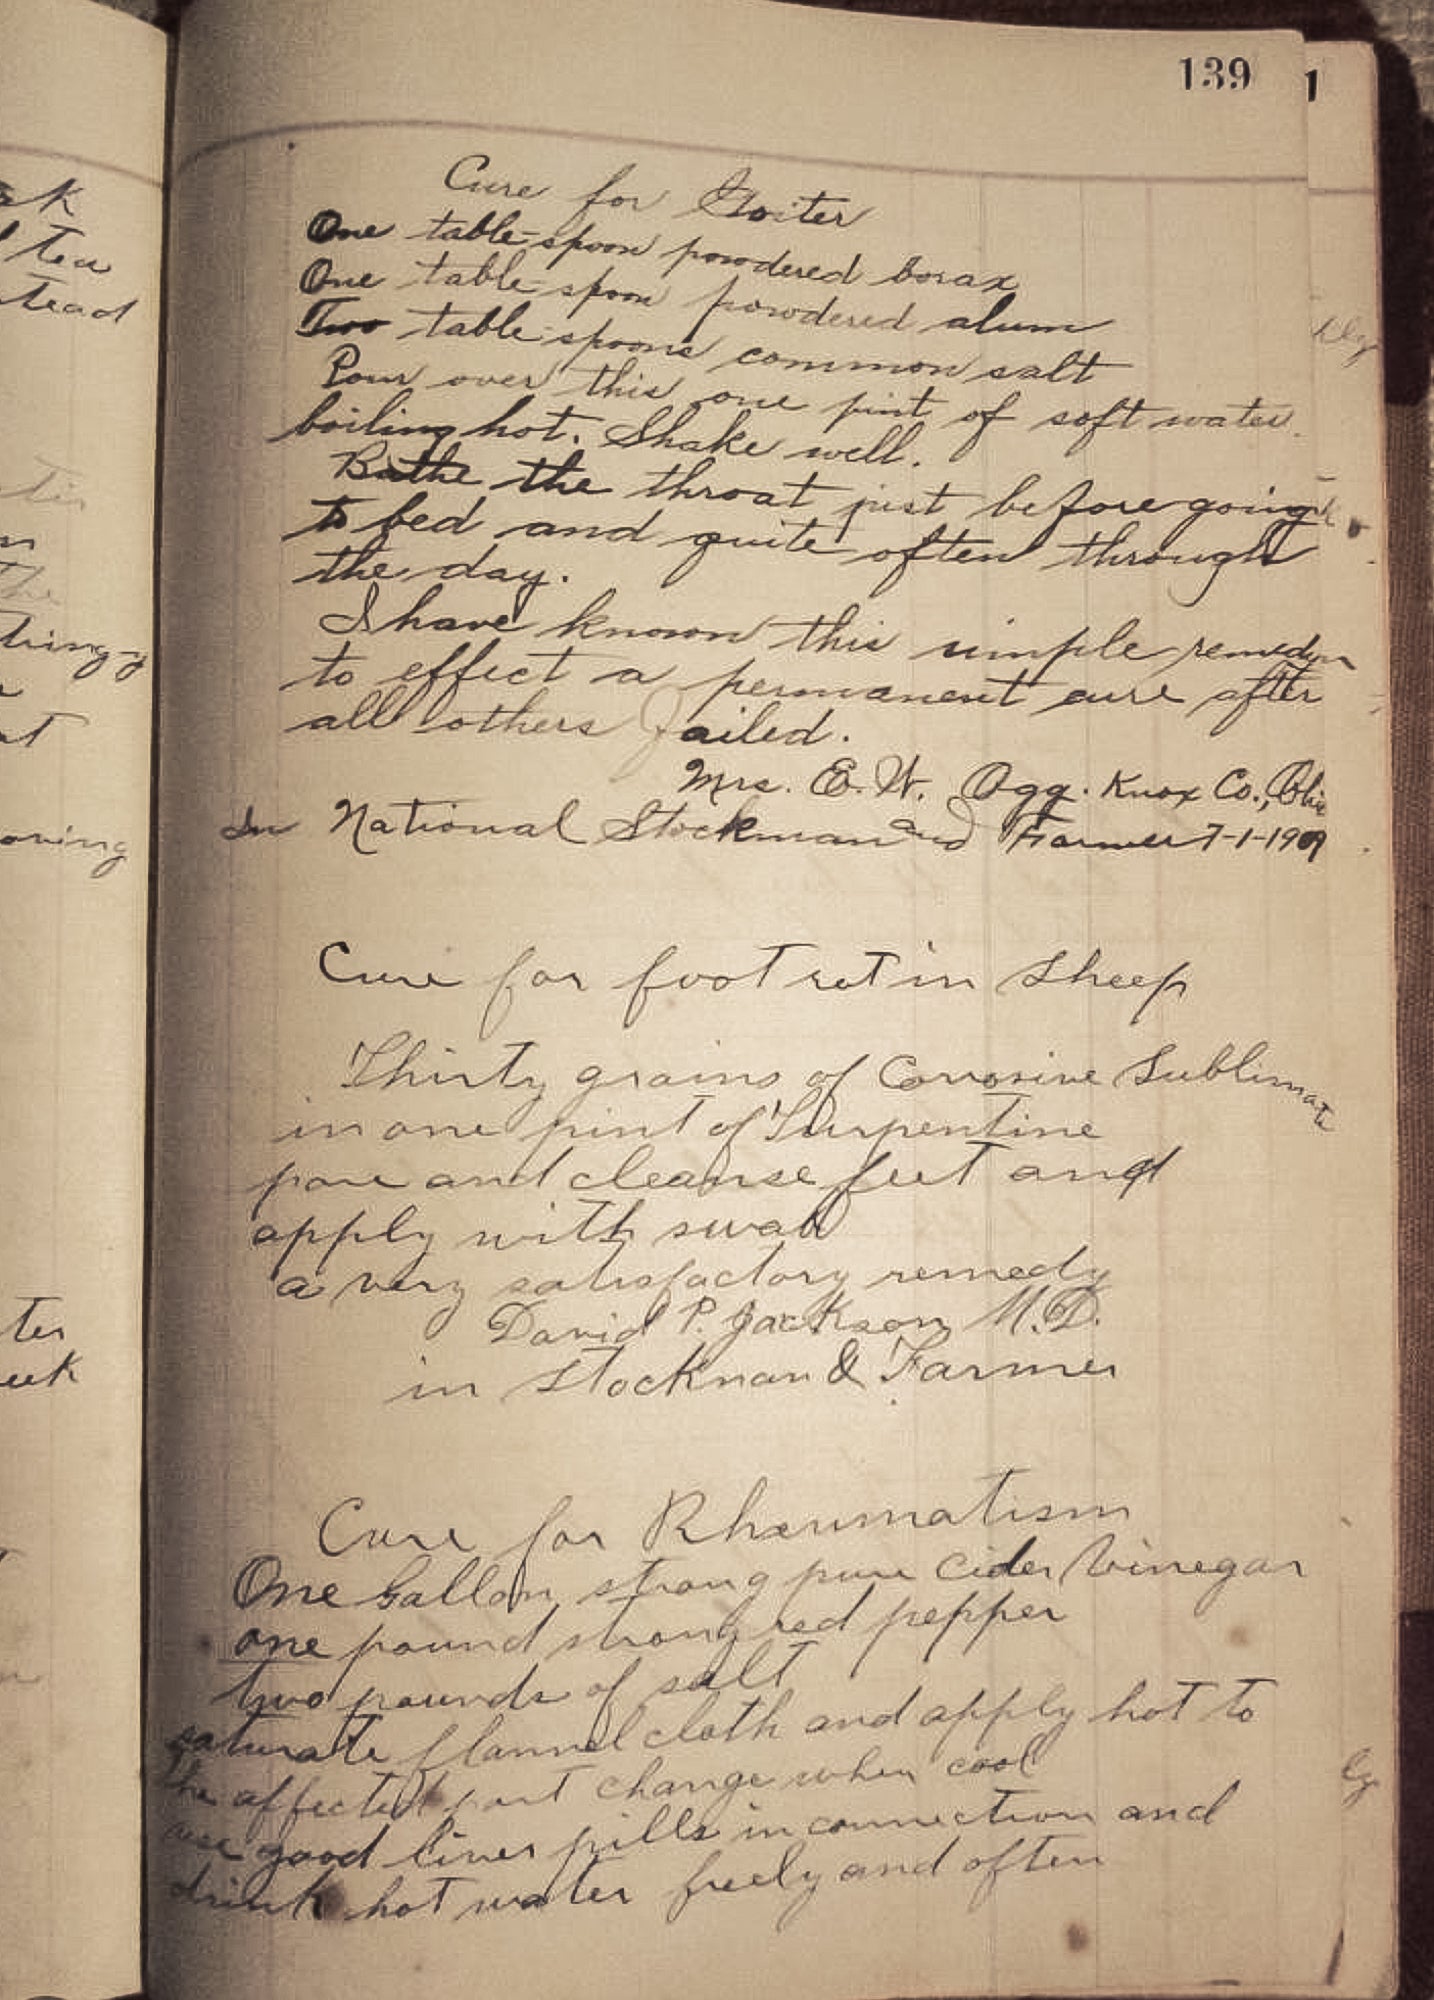 139
1
Cure for Goiter
One table-spoon powdered borax
One table-spoon powdered alum
Two table-spoons common salt
Pour over this one pint of soft water
boiling hot. Shake well.
Bathe the throat just before going
to bed and quite often through
the day.
I have known this simple remedy
to effect a permanent cure after
all others failed.
Mrs. E. W. Ogg. Knox Co., Ohio
In National Stockman and Farmer 7-1-1909
Cure for foot rot in Sheep
Thirty grains of Corrosive Sublimate
in one pint of Turpentine
pare and cleanse feet and
apply with swab
a very satisfactory remedy
David P. Jackson M.D.
in Stockman & Farmer
Cure for Rheumatism
One Gallon strong pure Cider Vinegar
one pound strong red pepper
two pounds of salt
saturate flannel cloth and apply hot to
the affected part change when cool
use good liver pills in connection and
drink hot water freely and often